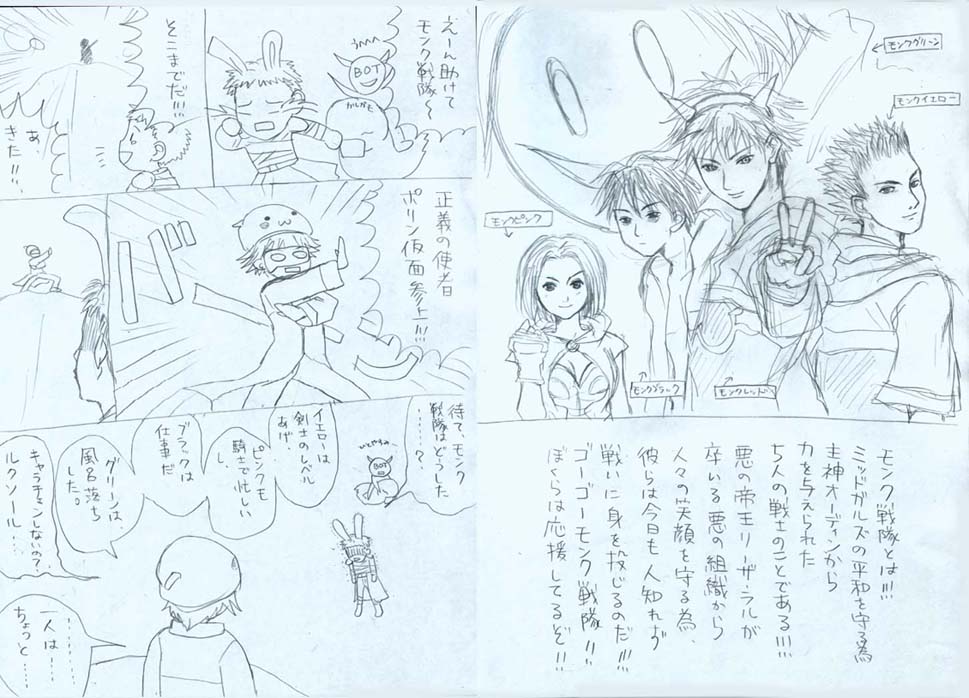 モンクグリーン
モンクイエロー
モンクピンク
モンクブラック
モンクレッド
モンク戦隊とは!!!
ミッドガルズの平和を守る為
主神オーディンから
力を与えられた
5人の戦士のことである!!!
悪の帝王リーザ・ラルが
率いる悪の組織から
人々の笑顔を守る為、
彼らは今日も人知れず
戦いに身を投じるのだ!!!
ゴーゴーモンク戦隊!!
ぼくらは応援してるぞ!!
えーん助けて
モンク戦隊～
BOT
そこまでだ!!!
あ、
きた!!!
正義の使者
ポリン仮面参上!!!
待て、モンク
戦隊はどうした
………?
BOT
イエローは
剣士のレベル
あげ、
ピンクも
騎士で忙しい
し、
ブラックは
仕事だ
グリーンは、
風呂落ち
した。
キャラチェンしないの?、
ルクソール…
………
一人は…
ちょっと…